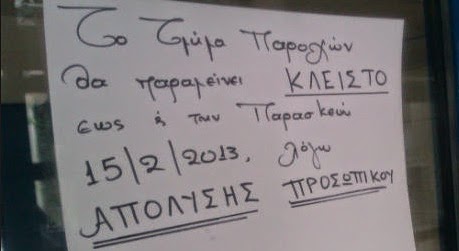 Το Τμήμα Παροχών
θα παραμείνει ΚΛΕΙΣΤΟ
εως και την Παρασκευή
15/2/2013, λόγω
ΑΠΟΛΥΣΗΣ ΠΡΟΣΩΠΙΚΟΥ